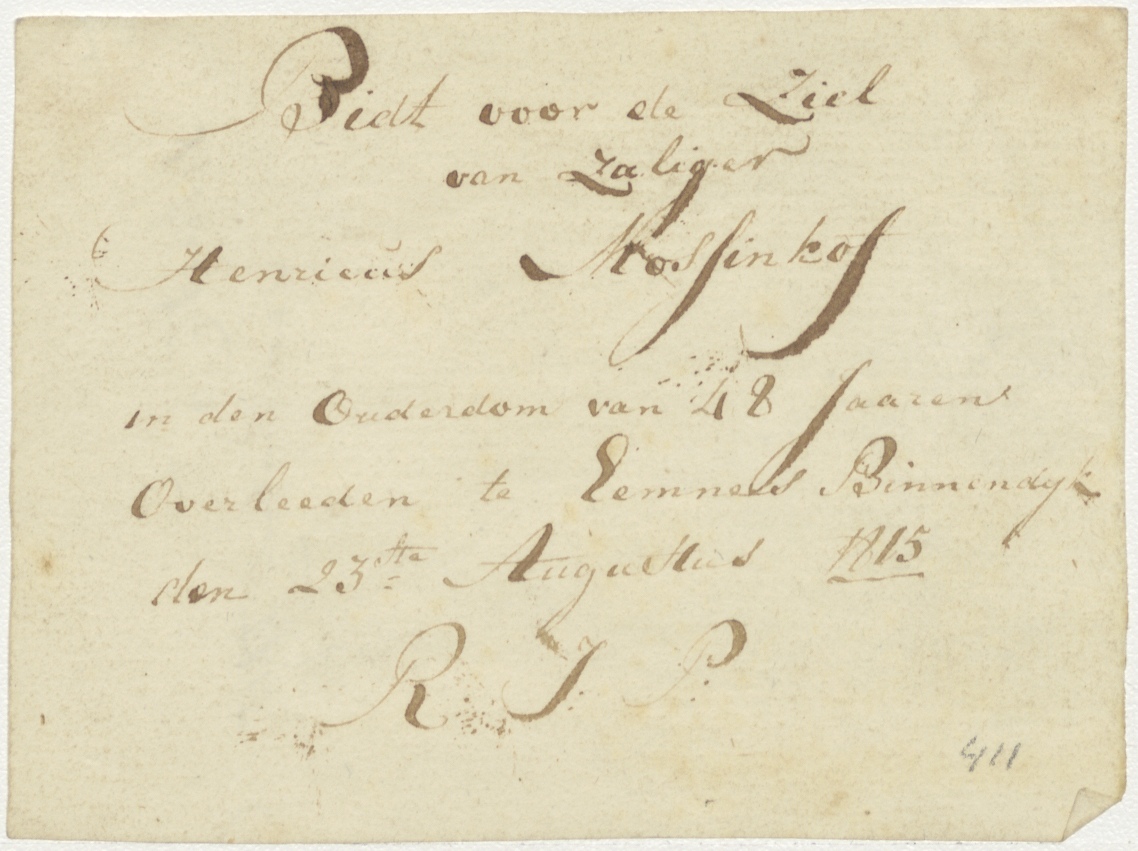 Bidt voor de Ziel
van Zaliger
Henricus Mossinkof
in den Ouderdom van 48 Jaaren
Overleeden te Eemnes Binnendyk
den 23ste Augustus 1815
R. I. P.
411